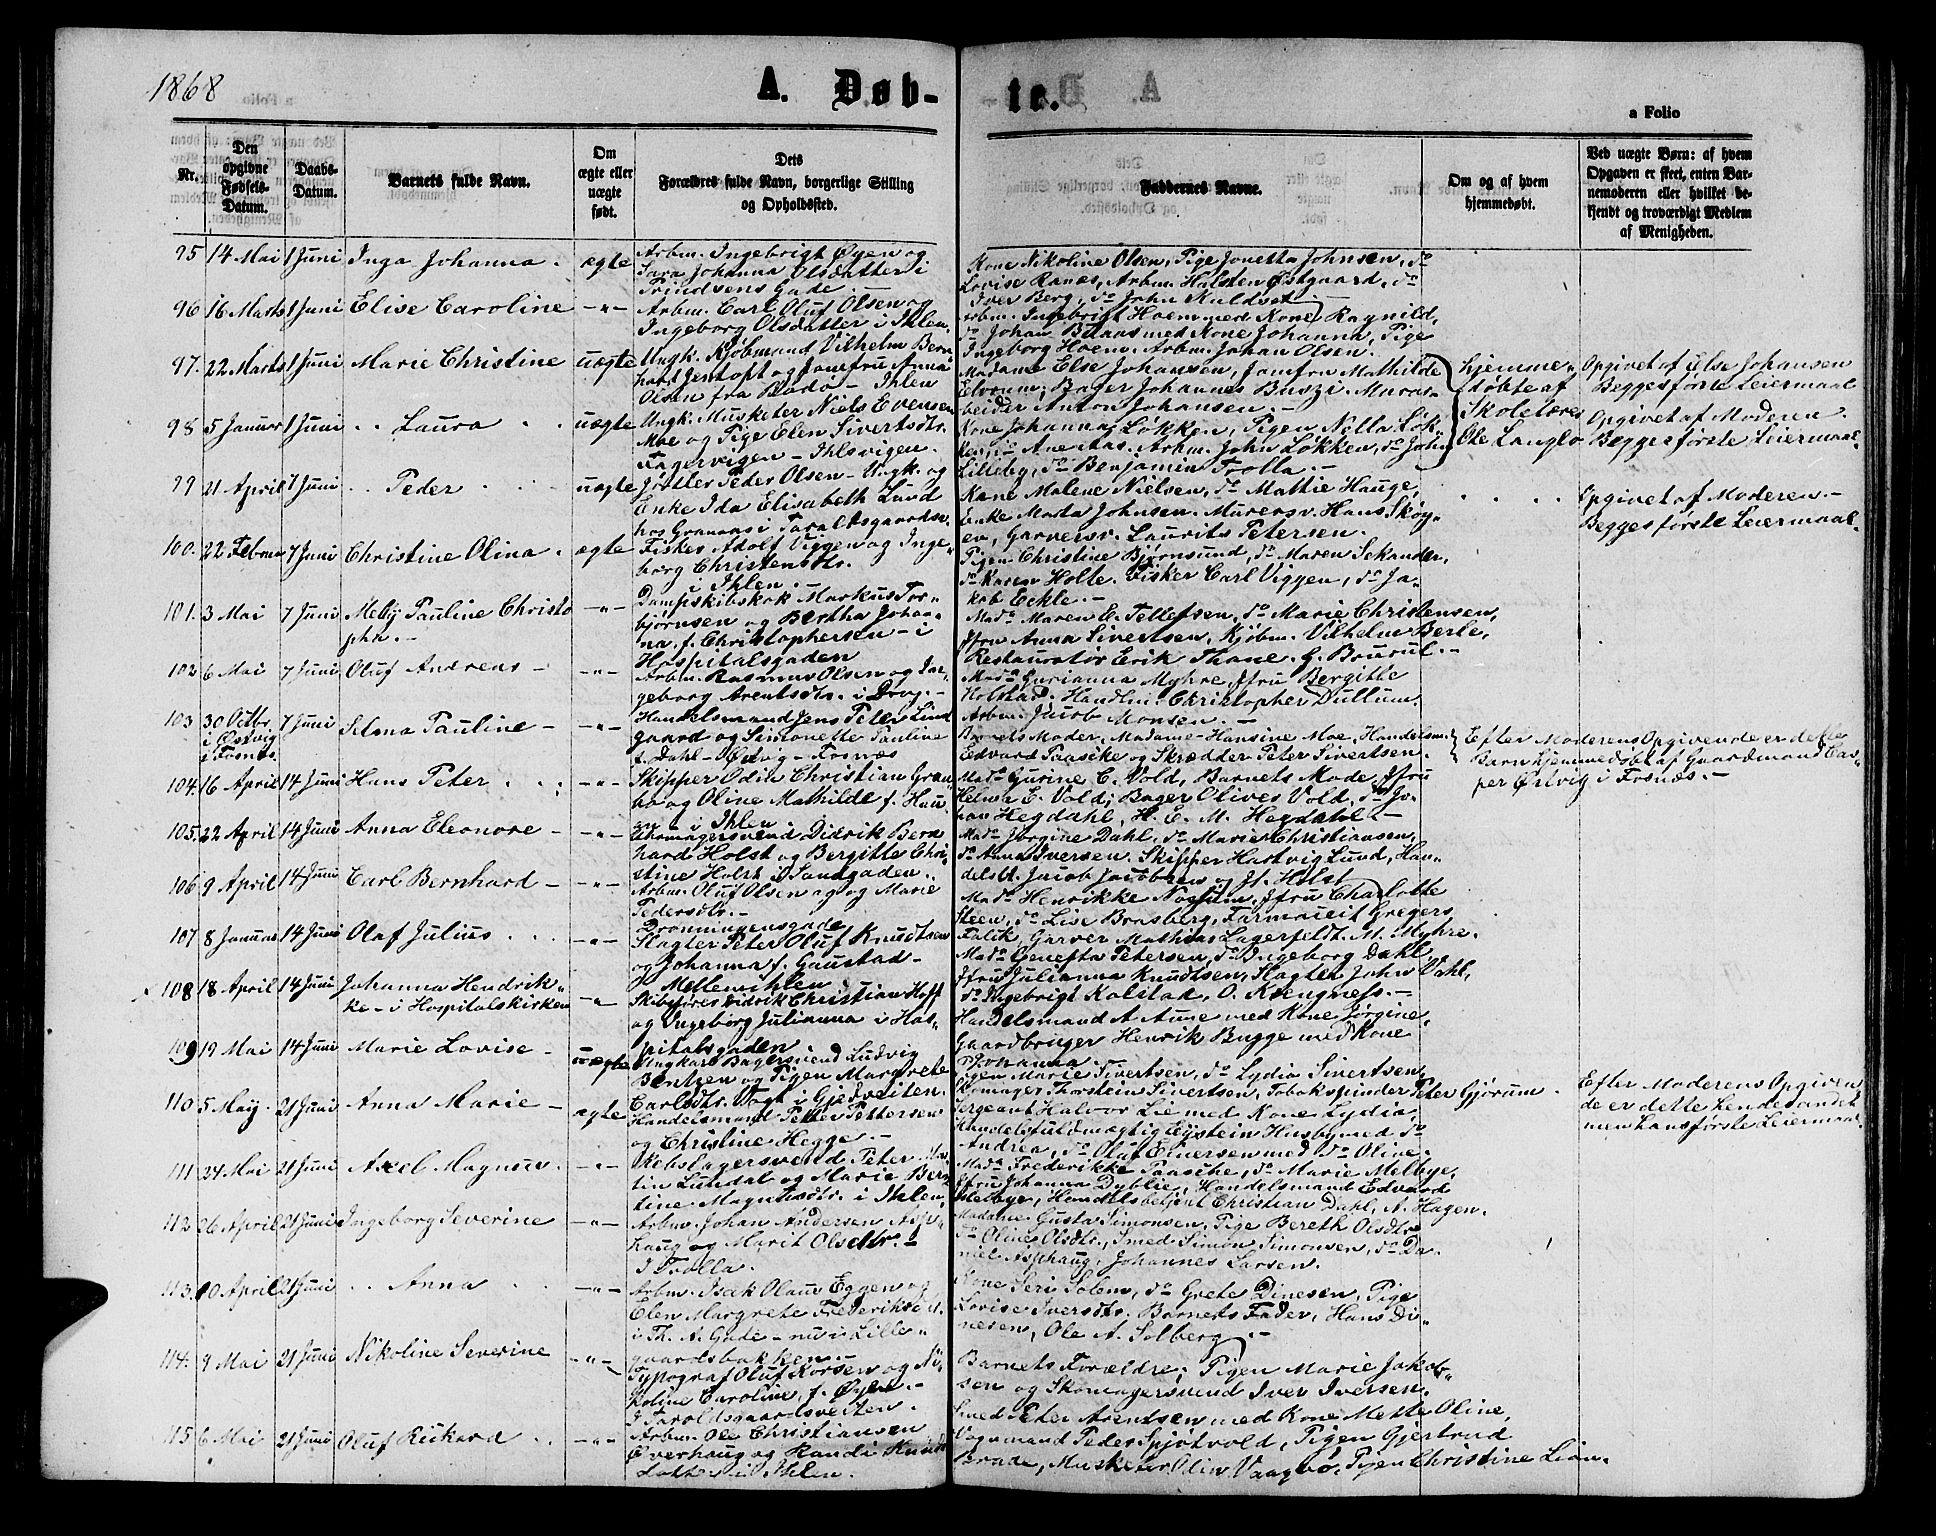 1868
A. Døb-
te.
a Folio
Nr.
Den opgivne Fødsels-Datum.
Daabs-Datum.
Barnets fulde Navn.
Om ægte eller uægte født.
Dets Forældres fulde Navn, borgerlige Stilling og Opholdssted.
Faddernes Navne.
Om og af hvem hjemmedøbt.
Ved uægte Børn: af hvem Opgaven er skeet, enten Barnemoderen eller hvilket bekjendt og troværdigt Medlem af Menigheden.
95 14 Mai 1 Juni Inga Johanna. ægte
Arbm. Ingebrigt Øyen og
Sara Johanna Olsdatter i
Prindsens Gade.
Kone Nikoline Olsen, Pige Jonetta Johnsen, do
Lovise Ranas, Arbm. Halsten Østgaard, do
Iver Berg, do John Kuldset
96 16 Marts 1 Juni Elise Caroline -"-
Arbm. Carl Oluf Olsen og
Ingeborg Olsdatter i Ihlen.
Arbm. Ingebrigt Hoem med Kone Ragnild,
do Johan Bruaas med Kone Johanna, Pige
Ingeborg Hoem. Arbm. Johan Olsen.
97. 22 Marts 1 Juni Marie Christine uægte
Ungk. Kjøbmand Vilhelm Bern
hard Jentoft og Jomfru Anna
Olsen fra Bodø - Ihlen
Madame Else Johansen, Jomfru Mathilde
Elvrum; Bager Johannes Buszi. Muras-
beider Anton Johansen. -
hjemme-
døbte af
Skolelærer
Ole Langlo
Opgivet af Else Johansen
Begges første Leiermaal
98. 5 Januar 1 Juni Laura uægte
Ungk. Musketer Niels Evensen
Moe og Pige Elen Sivertsdtr.
Fagervigen - Ihlsvigen.
Kone Johanna Løkken, Pigen Nella Løk-
ken, do Ane Aas. Arbm. John Løkken, do John
Lilleby, do Benjamin Trolla. -
Opgivet af Moderen.
Begges første Leiermaal.
99 21 April 7 Juni Peder uægte
Jøtler Peder Olsen - Ungk. og
Enke Ida Elisabeth Lund
hos Granaas i Taraldsgaardsv.
Kone Malene Nielsen, do Mattie Hauge,
Enke Mada Johnsen. Murersv. Hans Skoy-
en, Garversv. Laurits Petersen.
Opgivet af Moderen. -
Begges første Leiermaal.
100. 22 Februar 7 Juni Christine Olina. ægte
Fisker Adolf Viggen og Inge-
borg Christensdtr.
i Ihlen. -
Pigen Christine Bjørnsund, do Maren Sekander,
do Karen Holte. Fisker Carl Viggen, do Ja-
kob Eckle. -
101. 3 Mai 7 Juni Meby Pauline Christo
pha. - -"-
Dampskibskok Markus Tor-
bjørnsen og Bertha Johan-
na, f. Christophersen - i
Hospitalsgaden
Mada Maren E. Tellefsen, do Marie Christensen,
Jfru Anna Sivertsen, Kjøbm. Vilhelm Berle,
Restauratør Erik Thane. G. Brurul. -
102 6 Mai 7 Juni Oluf Andreas - -"-
Arbm. Rasmus Olsen og In-
geborg Arentsdtr. i Ihlen. -
Mada Gurianna Myhre, Jfru Bergitte
Kolstad. Handlm. Christopher Dullum.
Arbm. Jacob Monsen. -
103 30 Octbr. 7 Juni Selma Pauline - -"-
i Østvig
i Fosnæs
Handelsmand Jens Peter Lind
gaard og Simonette Pauline
f. Dahl - Østvig - Fosnæs
Barnets Moder, Madame Hansine Moe, Handelsm.
Edvard Paasike og Skrædder Peter Sivertsen.
Efter Moderens Opgivende er dette
Barn hjemmedøbt af Gaardmand Cas-
per Østvig i Fosnæs. -
104. 16 April 14 Juni Hans Peter -"-
Skipper Odin Christian Gran-
bo og Oline Mathilde f. Han
sen - i Ihlen
Mada Gurine C. Vold, Barnets Mode, Jfru
Helma E. Vold; Bager Olives Vold, do Jo-
han Hegdahl, H. E. M. Hegdahl -
105. 22 April 14 Juni Anna Eleonore - -"-
Skomagersvend Didrik Bern
hard Holst og Bergitte Chri-
stine Holst i Sandgaden.
Mada Jørgine Dahl, do Marie Christiansen,
do Anna Iversen. Skipper Hartvig Lund, Han-
delsbt. Jacob Jacobsen og Jt. Holst
106 9 April 14 Juni Carl Bernhard - -"-
Arbm. Oluf Olsen og og Marie
Pedersdtr. -
Dronningensgade
Mada Henrikke Nossum, Jfru Charlotte
Steen, do Lise Brasberg, Farmaceit Gregers
Falik, Garver Mathias Lagerfeldt. M. Myhre.
107 8 Januar 14 Juni Olaf Julius -"-
Slagter Peter Oluf Knudtsen
og Johanna f. Gaustad -
Mellemihlen
Mada Genefta Petersen, do Ingeborg Dahl,
Jfru Julianna Knudtsen, Slagter John Dahl,
do Ingebrigt Kolstad, O. Krengness. -
108 18 April 14 Juni Johanna Hendrik-
ke - i Hospitalskirken -"-
Skibsfører Didrik Christian Hoff
og Ingeborg Julianna i Hos-
pitalsgaden
Handelsmand A Aune med Kone Jørgine,
Gaardbruger Henrik Bugge med Kone
Johanna
109 19 Mai 14 Juni Marie Lovise - uægte
Ungkarl Bagersvend Ludvig
Bentzen og Pigen Margrete
Carlsdtr. Vogt i Gjedveiten.
Pigen Marie Sivertsen, do Lydia Sivertsen,
Skomager Thorstein Sivertsen, Tobakspinder Peter Gjørum.
Efter Moderens Opgiven
de er dette hendes andet
men hans første Leiermaal.
110 5 May. 21 Juni Anna Marie - ægte
Handelsmand Petter Pettersen
og Christine Hegge. -
Sergeant Halvor Lie med Kone Lydia,
Handelsfuldmægtig Eystein Husby med do
Andrea, do Oluf Einersen med do Oline.
111 24 Mai 21 Juni Axel Magnus. -"-
Rebslagersvend Peter Mar-
tin Lundal og Marie Bern
tine Magnusdtr. i Ihlen.
Mada Frederikke Paasche, do Marie Melbye,
Jfru Johanna Dyblie, Handelsmand Edvard
Melbye, Handelsbetjent Christian Dahl, A. Hagen.
112 26 April 21 Juni Ingeborg Severine -"-
Arbm. Johan Andersen Asp-
haug og Marit Olsdtr. -
I Trolla.
Madame Gusta Simonsen, Pige Bereth Olsdtr
do Oline Olsdtr., Smed Simon Simonsen, do Da-
niel Asphaug, Johannes Larsen.
113. 10 April 21 Juni Anna -"-
Arbm. Isak Olaus Eggen og
Elen Margrete Frederiksd.
i Th. A. Gade - nu i Lille-
gaardsbakken. -
Kone Seri Solem, do Grete Dinesen, Pige
Lovise Iversdtr. Barnets Fader, Hans Di-
nesen, Ole A. Solberg. -
114. 9 Mai 21 Juni Nikoline Severine -"-
Typograf Oluf Korsen og Ni-
koline Caroline, f. Øyen. -
I Taroldsgaardsveiten.
Barnets Forældre; Pigen Marie Jakob-
sen og Skomagersvend Iver Iversen.
115 6 Mai 21 Juni Oluf Rickard -"-
Arbm. Ole Christiansen
Everhaug og Randi Knuds
datter i Ihlen.
Smed Peter Arentsen med Kone Mette Oline,
Vognmand Peder Spjøtvold, Pigen Gjertrud
Brade, Musketer Odin Vaagbø, Pigen Christine Lian.